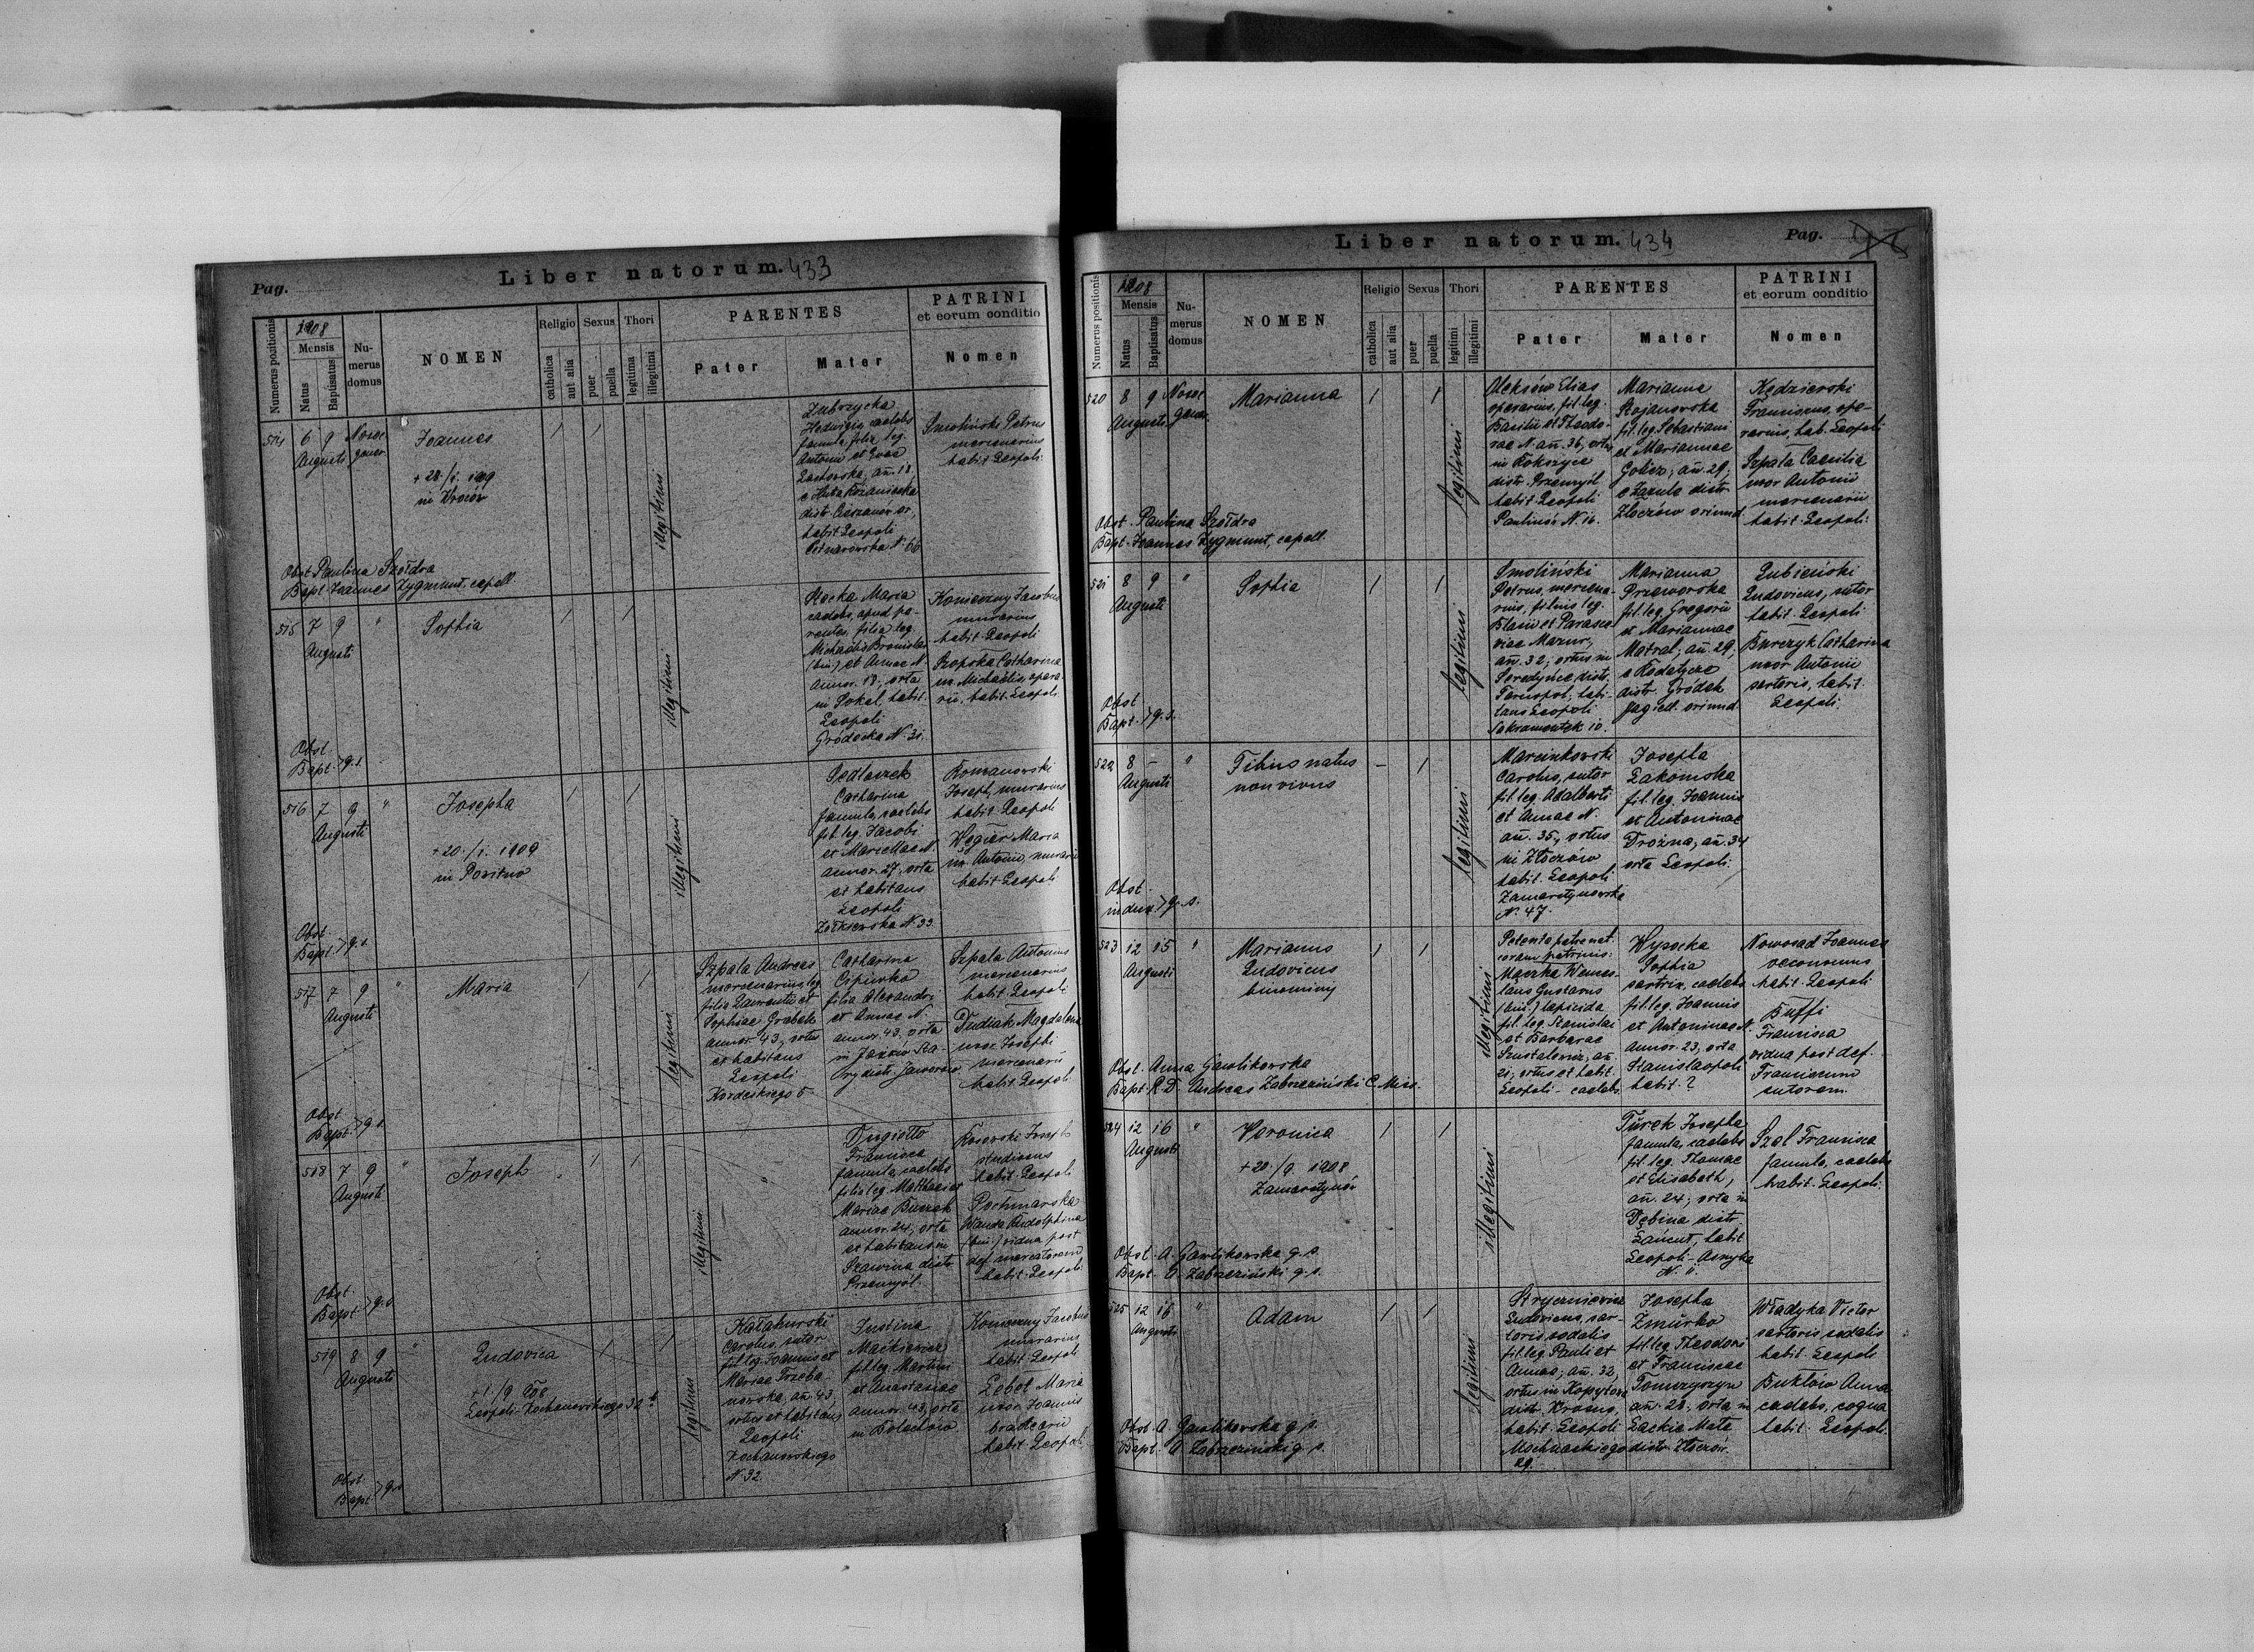 Pag.
Liber natorum. 433
Numerus positionis
1908
Mensis
Natus
Baptisatus
Numerus domus
NOMEN
Religio
catholica
aut alia
Sexus
puer
puella
Thori
legitima
illegitimi
PARENTES
Pater
Mater
PATRINI
et eorum conditio
Nomen
514 6 9
Augusti
Joannes
+ 28./1. 1909
illegitimi
Zubrzycka
Hedwigis caelebs
famula, filia leg.
Antonii et Evae
habit. Leopoli
Smoliński Petrus
mercenarius
habit. Leopoli.
Obst. Paulina Szołdra
Bapt. Joannes Zygmunt, capell.
515 7 9 "
Augusti
Sophia
illegitimi
Maria
caelebs, apud pa-
rentes, filia leg.
Michaelis Bronislai
(bin.) et Annae N.
annor. 18, orta
in Sokal, habit.
Leopoli
Gródecka N. 31.
Konieczny Jacobus
murarius
habit. Leopoli
Szopska Catharina
ux. Michaelis, opera-
rii, habit. Leopoli
Obst.
Bapt. > q. s.
516 7 9 "
Augusti
Josepha
+ 20./1. 1909
illegitimi
Sedlaczek
Catharina
famula, caelebs
fil. leg. Jacobi
et Marcellae N.
annor. 27, orta
et habitans
Leopoli
Żółkiewska N. 93.
Romanowski
Joseph, murarius
habit. Leopoli
Węgier Maria
ux. Antonii, murarii
habit. Leopoli
Obst.
Bapt. > q. s.
517 7 9 "
Augusti
Maria
legitimi
Szpala Andreas
mercenarius, leg.
filius Laurentii et
Sophiae Grabek
annor. 43, ortus
et habitans
Leopoli
Kordeckiego 5.
Catharina
Cipiwko
filia Alexandri
et Annae N.
annor. 43, orta
in Jazów Sta-
ry distr. Jaworów.
Szpala Antonius
mercenarius
habit. Leopoli
Dudiak Magdalena
uxor Josephi
mercenarii
habit. Leopoli
Obst.
Bapt. > q. s.
518 7 9 "
Augusti
Joseph
illegitimi
"
Francisca
famula, caelebs
filia leg. Matthaei et
Mariae
annor. 24, orta
et habitans in
distr.
Przemyśl.
Kosowski Joseph
studiosus
habit. Leopoli
Wanda Rudolphina
(bin.) vidua post
def. mercatorem
habit. Leopoli
Obst.
Bapt. > q. s.
519 8 9 "
Augusti
Ludovica
Leopoli - Kochanowskiego 32
legitimi
Carolus, sutor
fil. leg. Joannis et
Mariae Trzeba-
nowska, añ. 43,
ortus et habitans
Leopoli
Kochanowskiego
N. 32.
Justina
Mackiewicz
fil. leg. Martini
et Anastasiae
annor. 43, orta
in Bolechów
Konieczny Jacobus
murarius
habit. Leopoli
Lebet Maria
uxor Joannis
habit. Leopoli
Obst.
Bapt. > q. s.
Liber natorum. 434
Pag.
Numerus positionis
1908
Mensis
Natus
Baptisatus
Numerus domus
NOMEN
Religio
catholica
aut alia
Sexus
puer
puella
Thori
legitimi
illegitimi
PARENTES
Pater
Mater
PATRINI
et eorum conditio
Nomen
520 8 9
Augusti
Marianna
legitimi
Aleksów Elias
operarius, fil. leg.
Basilii et Theodo-
rae N. añ. 36, ortus
in Rokszyce
distr. Przemyśl
habit. Leopoli
Paulinów N. 16.
Marianna
Stojanowska
fil. leg. Sebastiani
et Mariannae
añ. 29,
distr.
Złoczów oriund.
Kędzierski
Franciscus, ope-
rarius, hab. Leopoli
Szpala Caecilia
uxor Antonii
mercenarii
habit. Leopoli
Obst. Paulina Szołdra
Bapt. Joannes Zygmunt, capell.
521 8 9 "
Augusti
Sophia
legitimi
Smoliński
Petrus, mercena-
rius, filius leg.
Blasii et Parasce-
viae Mazur,
añ. 32, ortus in
Seredyńce distr.
Tarnopol, habi-
tans Leopoli
Sakramentek 10.
Marianna
Przeworska
fil. leg. Gregorii
et Mariannae
Motral, añ. 29,
e Rodatycze
distr. Gródek
Jagiell. oriund.
Lubieński
Ludovicus, sutor
habit. Leopoli
Burczyk Catharina
uxor Antonii
sartoris, habit.
Leopoli.
Obst.
Bapt. > q. s.
522 8 - "
Augusti
Filius natus
non vivus
legitimi
Marcinkowski
Carolus, sutor
fil. leg. Adalberti
et Annae N.
añ. 35, ortus
in Złoczów
habit. Leopoli
Zamarstynowska
N. 47.
Josepha
Łakomska
fil. leg. Joannis
et Antoninae
Drożna, añ. 34
orta Leopoli.
Obst.
indux. > q. s.
523 12 15 "
Augusti
Marianus
Ludovicus
binominis
illegitimi
coram patrinis:
Wences-
laus Gustavus
(bin.) lapicida
fil. leg. Stanislai
et Barbarae
añ.
21, ortus et habit.
Leopoli - caelebs
Wysocka
Sophia
sartrix, caelebs
fil. leg. Joannis
et Antoninae N.
annor. 23, orta
Stanislaopoli
habit. ?
Nowosad Joannes
oeconomus
habit. Leopoli
Buffi
Francisca
vidua post def.
Franciscum
sutorem.
Obst. Anna Gawlikowska
Bapt. R. D. Andreas Zabrzeziński C. Miss.
524 12 16 "
Augusti
Veronica
+ 20./9. 1908
Zamarstynów
illegitimi
Turek Josepha
famula, caelebs
fil. leg. Thomae
et Elisabeth,
añ. 24, orta in
Dębina distr.
Łańcut, habit.
Leopoli - Asnyka
N. 11.
Szal Francisca
famula, caelebs
habit. Leopoli.
Obst. A. Gawlikowska q. s.
Bapt. A. Zabrzeziński q. s.
525 12 16 "
Augusti
Adam
legitimi
Ludovicus, sar-
toris sodalis
fil. leg. Pauli et
Annae, añ. 32,
ortus in Kopytowa
distr. Krosno,
habit. Leopoli
Mochnackiego
29.
Josepha
Żmurko
fil. leg. Theodori
et Franciscae
Tomczyszyn
añ. 28, orta in
Laskie Małe
distr. Złoczów.
Władyka Victor
sartoris sodalis
habit. Leopoli
Buklów Anna
caelebs, coqua
habit. Leopoli.
Obst. A. Gawlikowska q. s.
Bapt. A. Zabrzeziński q. s.